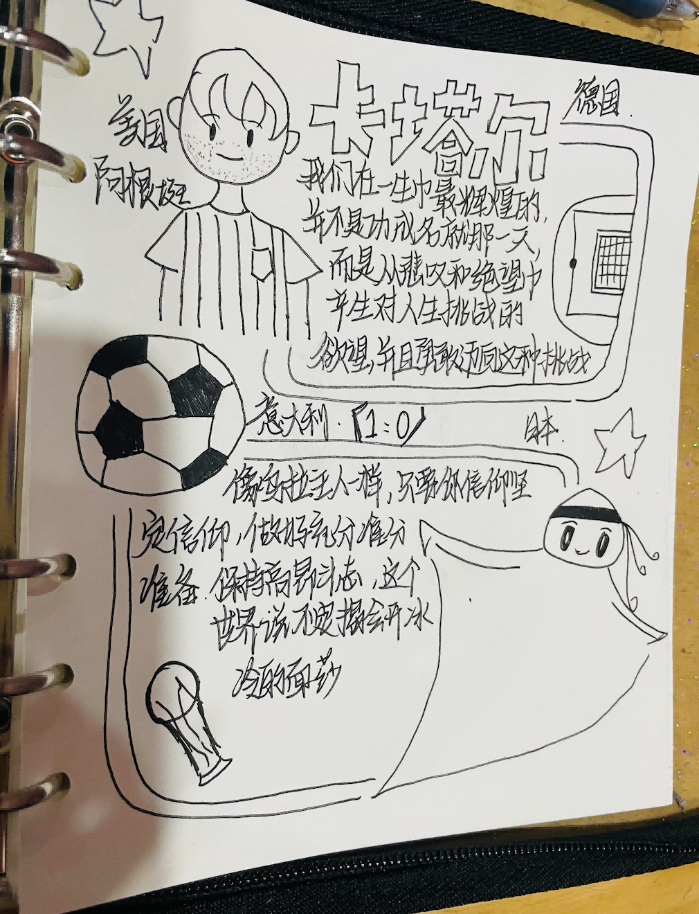 卡塔尔
德国.
美国
阿根廷
我们在一生中最辉煌的,
并不是功成名就那一天,
而是从悲叹和绝望中
产生对人生挑战的
欲望,并且勇敢迈向这种挑战
意大利.「1:0」
日本.
像乌拉圭人一样,只要你信仰坚
定信仰,做好充分准分
准备.保持高昂斗志,这个
世界说不定揭会开冰
冷的面纱